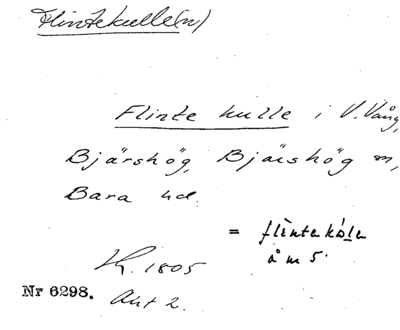 Flintekulle(n)
Flinte kulle i V. Vång,
Bjärshög, Bjärshög m,
Bara hd.
= flintekåle
å m 5.
Lh. 1805
Nr 6298. Akt 2.